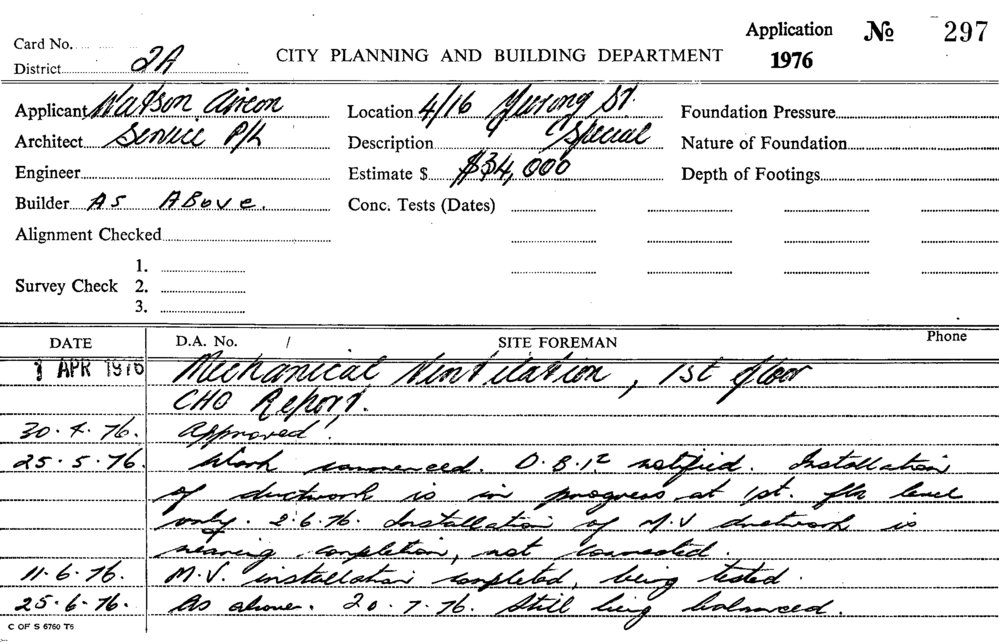 Application № 297
Card No.
District 2A CITY PLANNING AND BUILDING DEPARTMENT 1976
Applicant Watson Aircon Location 4/16 Yurong St. Foundation Pressure
Architect Service P/L Description Special Nature of Foundation
Engineer Estimate $ $34,000 Depth of Footings
Builder As Above. Conc. Tests (Dates)
Alignment Checked
1.
Survey Check 2.
3.
DATE D.A. No. / SITE FOREMAN Phone
1 APR 1976 Mechanical Ventilation, 1st floor
CHO Report.
30.4.76. Approved.
25.5.76. Work commenced. D.B.I. notified. Installation
of ductwork is in progress at 1st. flr level
only. 2.6.76. Installation of M.V ductwork is
nearing completion, not connected.
11.6.76. M.V. installation completed, being tested.
25.6.76. As above. 20.7.76. Still being balanced.
C OF S 6760 T5